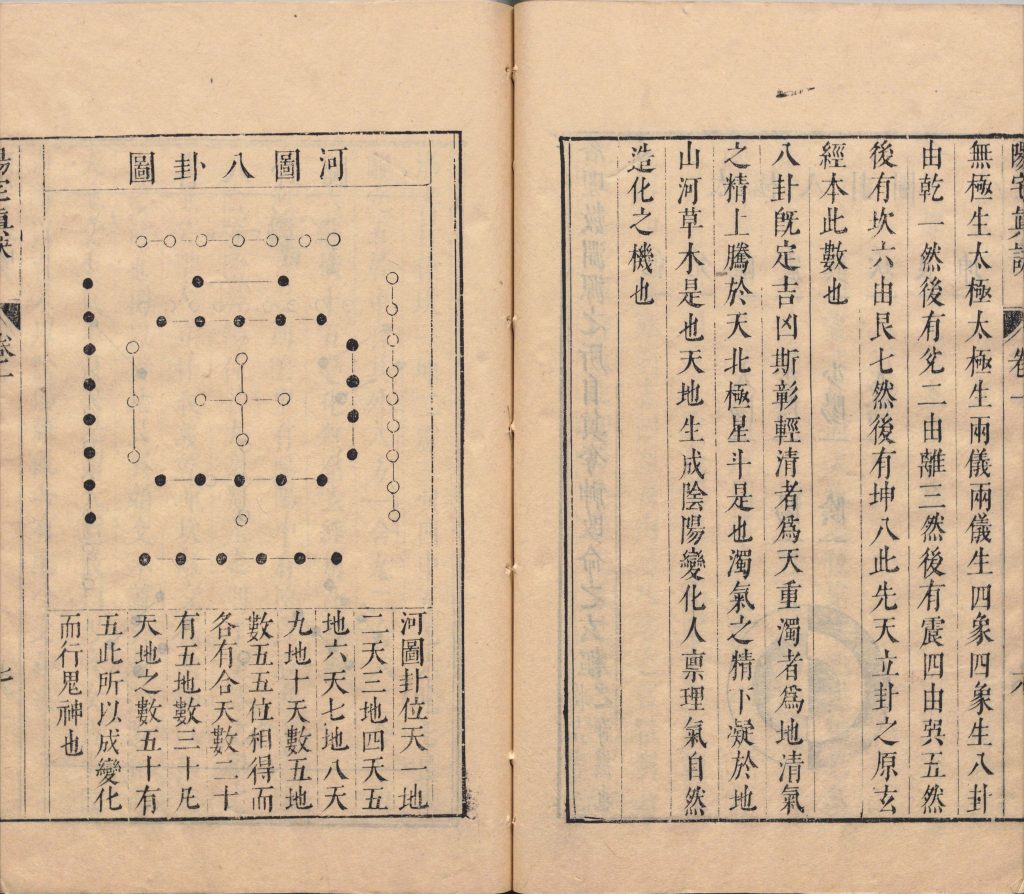 陽宅真訣
卷一
六
無極生太極太極生兩儀兩儀生四象四象生八卦
由乾一然後有兌二由離三然後有震四由巽五然
後有坎六由艮七然後有坤八此先天立卦之原玄
經本此數也
八卦旣定吉凶斯彰輕清者爲天重濁者爲地清氣
之精上騰於天北極星斗是也濁氣之精下凝於地
山河草木是也天地生成陰陽變化人禀理氣自然
造化之機也
河圖八卦圖
河圖卦位天一地
二天三地四天五
地六天七地八天
九地十天數五地
數五五位相得而
各有合天數二十
有五地數三十凡
天地之數五十有
五此所以成變化
而行鬼神也
陽宅真訣
卷一
七